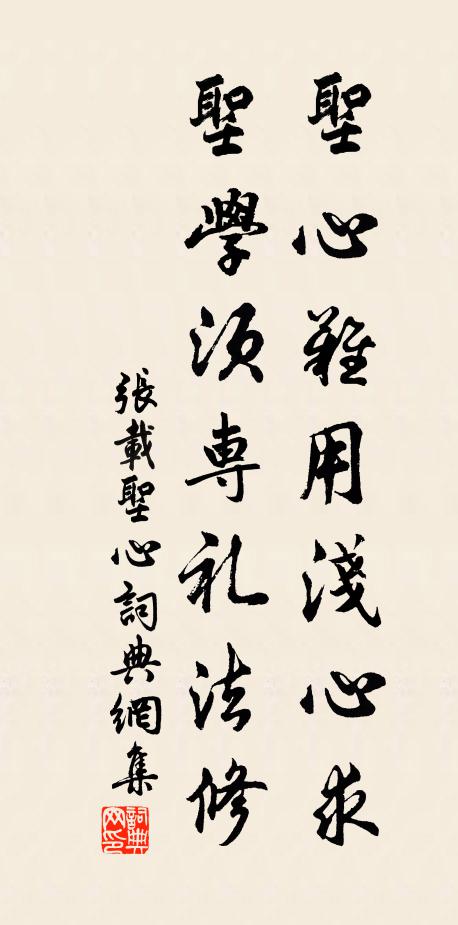 聖心難用淺心求
聖學須專礼法修
張載聖心詞典網集
詞典网印